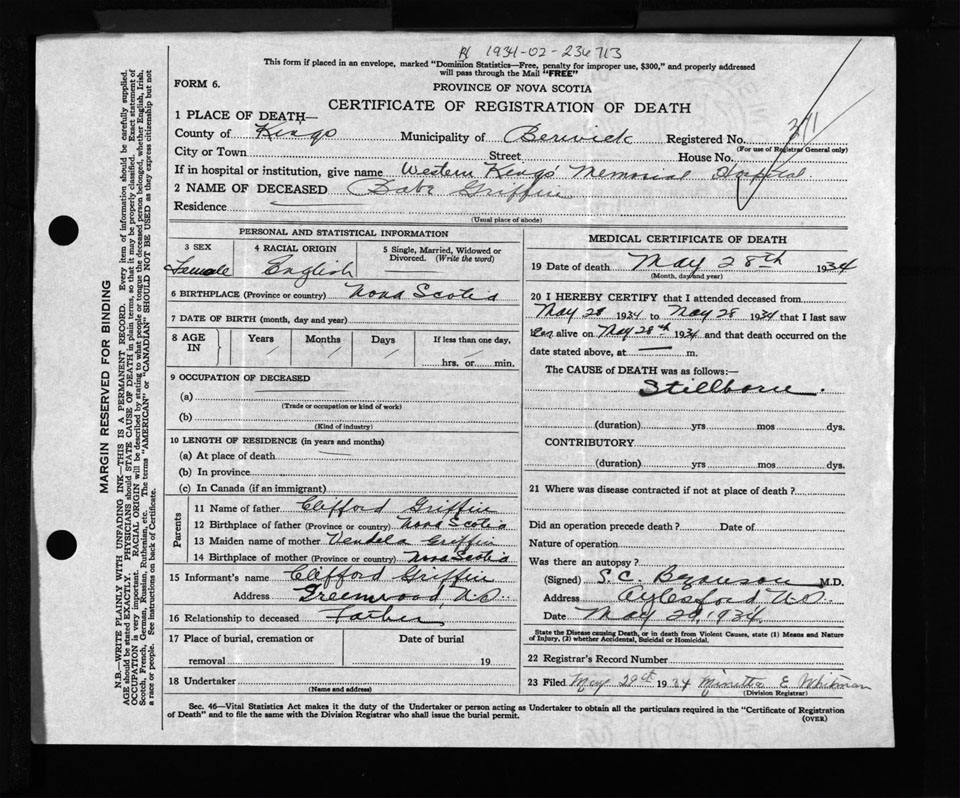 1934-02-234713
This form if placed in an envelope, marked "Dominion Statistics—Free, penalty for improper use, $300," and properly addressed
will pass through the Mail "FREE"
FORM 6.
PROVINCE OF NOVA SCOTIA
CERTIFICATE OF REGISTRATION OF DEATH
1 PLACE OF DEATH—
County of Kings Municipality of Berwick Registered No. 371
(For use of Registrar General only)
City or Town Street House No.
If in hospital or institution, give name Western Kings Memorial Hospital
2 NAME OF DECEASED Baby Griffin
Residence
(Usual place of abode)
PERSONAL AND STATISTICAL INFORMATION
3 SEX 4 RACIAL ORIGIN 5 Single, Married, Widowed or
Divorced. (Write the word)
Female English
6 BIRTHPLACE (Province or country) Nova Scotia
7 DATE OF BIRTH (month, day and year)
8 AGE IN Years Months Days If less than one day,
hrs. or min.
9 OCCUPATION OF DECEASED
(a)
(Trade or occupation or kind of work)
(b)
(Kind of industry)
10 LENGTH OF RESIDENCE (in years and months)
(a) At place of death
(b) In province
(c) In Canada (if an immigrant)
Parents
11 Name of father Clifford Griffin
12 Birthplace of father (Province or country) Nova Scotia
13 Maiden name of mother Vendela Griffin
14 Birthplace of mother (Province or country) Nova Scotia
15 Informant's name Clifford Griffin
Address Greenwood, N.S.
16 Relationship to deceased Father
17 Place of burial, cremation or Date of burial
removal 19
18 Undertaker
(Name and address)
MEDICAL CERTIFICATE OF DEATH
19 Date of death May 28th 1934
(Month, day and year)
20 I HEREBY CERTIFY that I attended deceased from
May 28 1934 to May 28 1934 that I last saw
alive on May 28th 1934 and that death occurred on the
date stated above, at — m.
The CAUSE of DEATH was as follows:—
Stillborn.
(duration) yrs mos dys.
CONTRIBUTORY
(duration) yrs mos dys.
21 Where was disease contracted if not at place of death?
Did an operation precede death? Date of
Nature of operation
Was there an autopsy?
(Signed) S. C. Bezanson M.D.
Address Aylesford N.S.
Date May 29, 1934
State the Disease causing Death, or in death from Violent Causes, state (1) Means and Nature
of Injury, (2) whether Accidental, Suicidal or Homicidal.
22 Registrar's Record Number
23 Filed May 29th 1934 Minetta E Whitman
(Division Registrar)
Sec. 46—Vital Statistics Act makes it the duty of the Undertaker or person acting as Undertaker to obtain all the particulars required in the "Certificate of Registration
of Death" and to file the same with the Division Registrar who shall issue the burial permit. (OVER)
MARGIN RESERVED FOR BINDING
N.B.—WRITE PLAINLY WITH UNFADING INK—THIS IS A PERMANENT RECORD. Every item of information should be carefully supplied.
AGE should be stated EXACTLY. PHYSICIANS should STATE CAUSE OF DEATH in plain terms, so that it may be properly classified. Exact statement of
OCCUPATION is very important. RACIAL ORIGIN will be described by stating to what people or tongue the deceased person belonged, whether English, Irish,
Scotch, French, German, Russian, Ruthenian, etc. The terms "AMERICAN" or "CANADIAN" SHOULD NOT BE USED as they express citizenship but not
a race or people. See instructions on back of Certificate.